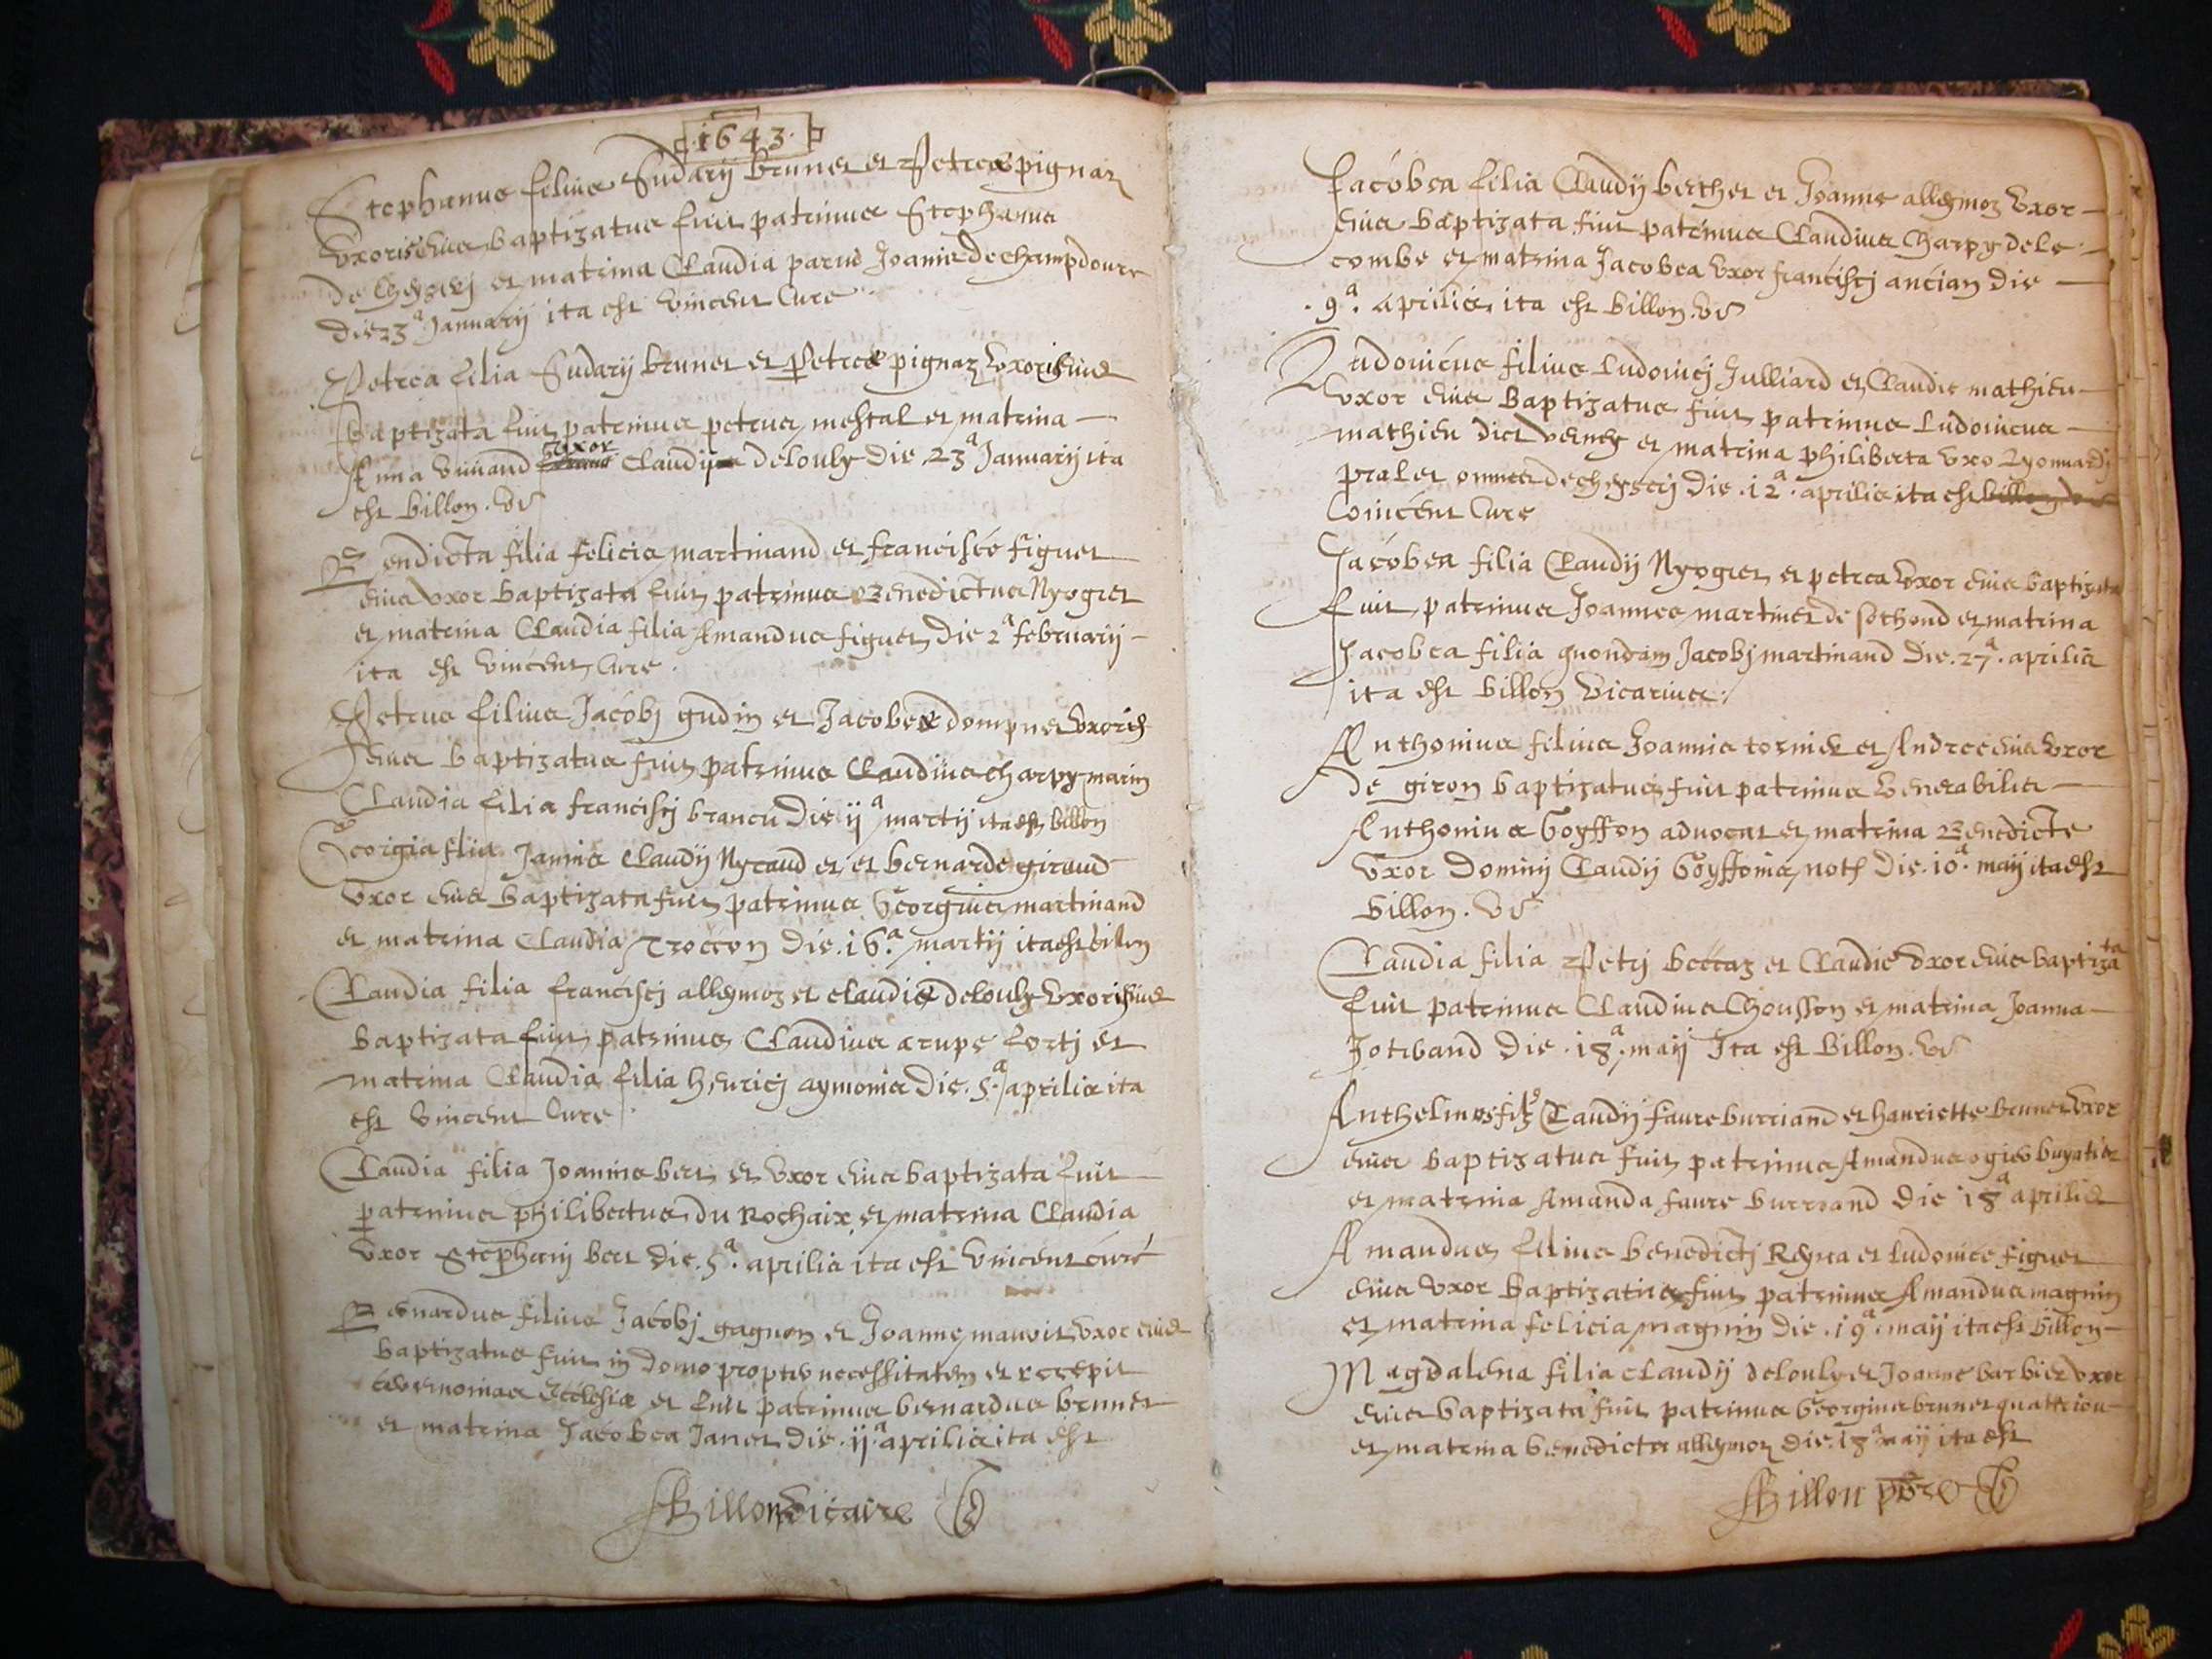 1643
Stephanus filius Sudarij brunet et Petreae pignaz
uxoris eius baptizatus fuit patrinus Stephanus
de et matrina Claudia parud Joanis de champdoure
die 23ª Januarij ita est vincent Cure
Petrea filia Sudarij brunet et Petreae pignaz uxoris eius
baptizata fuit patrinus petrus mestral et matrina
Anna vuivand uxor Claudij delouly die 23ª Januarij ita
est billon. vs
Bendicta filia felicis martinand et francisce figuet
eius uxor baptizata fuit patrinus Benedictus Nyogret
et matrina Claudia filia Amandus figuet die 2ª februarij
ita est vincent Cure.
Petrus filius Jacobj gudin et Jacobeae dompnet uxoris
eius baptizatus fuit patrinus Claudius charpy marin
Claudia filia franciscj brancu die ijª martij ita est billon
Georgia filia Jannis Claudij Nyraud et et bernarde giraud
uxor eius baptizata fuit patrinus Georgius martinand
et matrina Claudia Troccon die .16.ª martij ita est bilon
Claudia filia franciscj alleymoz et claudie delouly uxoris eius
baptizata fuit patrinus Claudius crupe fortj et
matrina Claudia filia henricj aymonis die .5.ª aprilis ita
est vincent Cure
Claudia filia Joannis bert et uxor eius baptizata fuit
patrinus philibertus du Rochaix et matrina Claudia
uxor Stephanj bert die .5.ª aprilis ita est vincent curé
Bernardus filius Jacobj gagnon et Joanne mauvit uxor eius
baptizatus fuit in domo propter necessitatem et recepit
ceremonias Ecclesiae et fuit patrinus bernardus brunet
et matrina Jacobea Janet die .ij.ª aprilis ita est
Billon vicaire
Jacobea filia Claudij berthet et Joanne alleymoz uxor
eius baptizata fuit patrinus Claudius charpy dele
combe et matrina Jacobea uxor franciscj ancian die
.9.ª aprilis ita est billon. vs
Ludovicus filius Ludovicj Julliard et Claudie mathieu
uxor eius baptizatus fuit patrinus Ludovicus
mathieu dict verney et matrina philiberta uxo Lyonnardj
pralet omnes de die .12.ª aprilis ita est billon vs
vincent Cure
Jacobea filia Claudij Nyogret et petrea uxor eius baptizata
fuit patrinus Joannes martinet de sothond et matrina
Jacobea filia quondam Jacobj martinand die .27.ª aprilis
ita est billon vicarius
Anthonius filius Joannis tornier et Andree eius uxor
de giron baptizatus fuit patrinus venerabilis
Anthonius Goyffon advocat et matrina Benedicte
uxor dominj Claudij Goyffonis not die .10.ª maij ita est
billon. vs
Claudia filia Petrj beccaz et Claudie uxor eius baptizata
fuit patrinus Claudius Chousson et matrina Joanna
Jotvand die .18.ª maij Ita est billon. vs
Anthelmus Claudij faure burriand et hanriette brunet uxor
eius baptizatus fuit patrinus Amandus ogier buyatier
et matrina Amanda faure burriand die 18ª aprilis
Amandus filius benedictj Reyna et ludovice figuet
eius uxor baptizatus fuit patrinus Amandus magnin
et matrina felicia magnin die .19.ª maij ita est billon
Magdalena filia claudij delouly et Joanne barbier uxor
eius baptizata fuit patrinus Georgius brunet quattrion
et matrina benedicta alleymoz die .18.ª maij ita est
Billon pbre